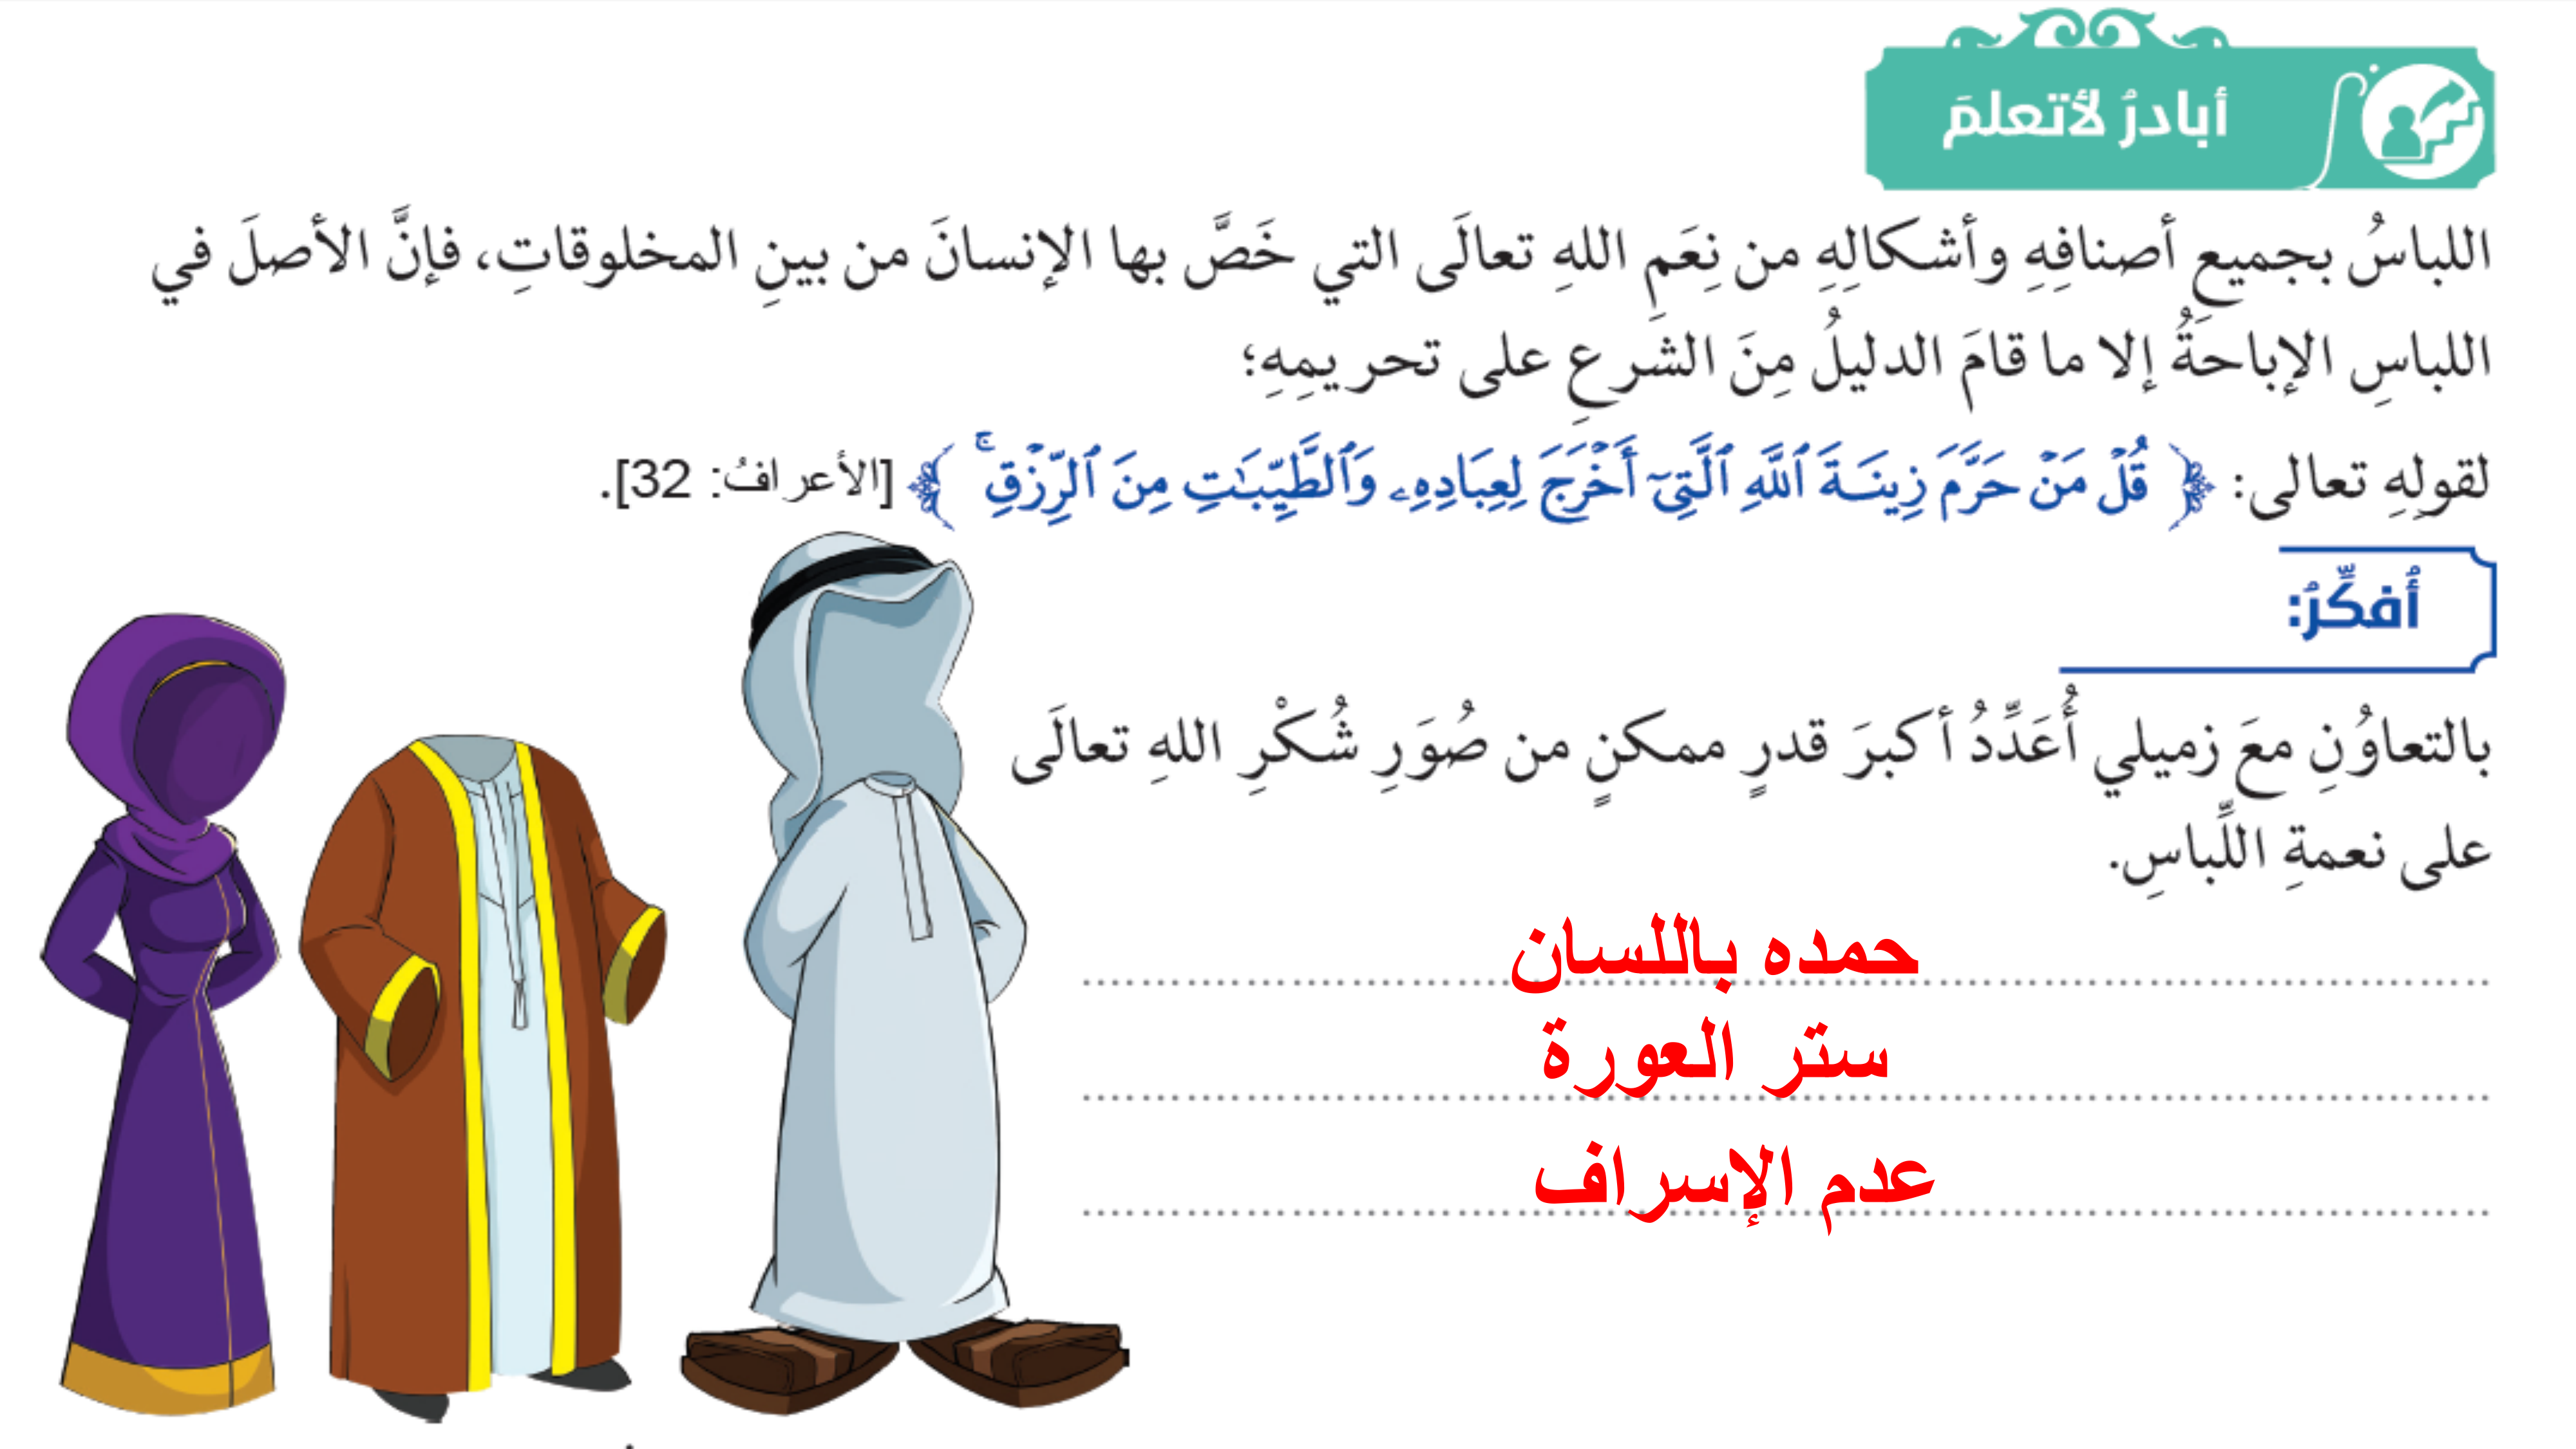 أبادرُ لأتعلمَ
اللباسُ بجميعِ أصنافِهِ وأشكالِهِ من نِعَمِ اللهِ تعالَى التي خَصَّ بها الإنسانَ من بينِ المخلوقاتِ، فإنَّ الأصلَ في
اللباسِ الإباحَةُ إلا ما قامَ الدليلُ مِنَ الشرعِ على تحريمِهِ؛
لقولِهِ تعالى: ﴿ قُلْ مَنْ حَرَّمَ زِينَةَ ٱللَّهِ ٱلَّتِىٓ أَخْرَجَ لِعِبَادِهِۦ وَٱلطَّيِّبَٰتِ مِنَ ٱلرِّزْقِ ۚ ﴾ [الأعرافُ: 32].
أُفكِّرُ:
بالتعاوُنِ معَ زميلي أُعَدِّدُ أكبرَ قدرٍ ممكنٍ من صُوَرِ شُكْرِ اللهِ تعالَى
على نعمةِ اللِّباسِ.
حمده باللسان
ستر العورة
عدم الإسراف